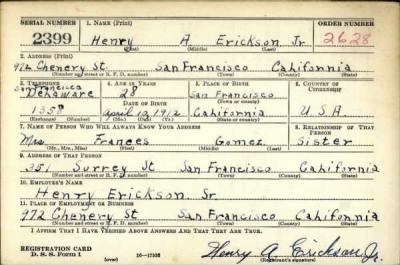 SERIAL NUMBER 1. NAME (Print) ORDER NUMBER
2399 Henry A Erickson, Jr 2628
(First) (Middle) (Last)
2. ADDRESS (Print)
972 Chenery St. San Francisco California
(Number and street or R. F. D. number) (Town) (County) (State)
3. TELEPHONE 4. AGE IN YEARS 5. PLACE OF BIRTH 6. COUNTRY OF CITIZENSHIP
San Francisco
Delaware 28 San Francisco
DATE OF BIRTH (Town or county)
1358 April 12, 1912 California U.S.A.
(Exchange) (Number) (Mo.) (Day) (Yr.) (State or country)
7. NAME OF PERSON WHO WILL ALWAYS KNOW YOUR ADDRESS 8. RELATIONSHIP OF THAT PERSON
Mrs Frances Gomez Sister
(Mr., Mrs., Miss) (First) (Middle) (Last)
9. ADDRESS OF THAT PERSON
351 Surrey St San Francisco California
(Number and street or R. F. D. number) (Town) (County) (State)
10. EMPLOYER'S NAME
Henry Erickson Sr
11. PLACE OF EMPLOYMENT OR BUSINESS
972 Chenery St San Francisco California
(Number and street or R. F. D. number) (Town) (County) (State)
I AFFIRM THAT I HAVE VERIFIED ABOVE ANSWERS AND THAT THEY ARE TRUE.
REGISTRATION CARD
D. S. S. Form 1 (over) 16-17105 Henry A. Erickson Jr.
(Registrant's signature)